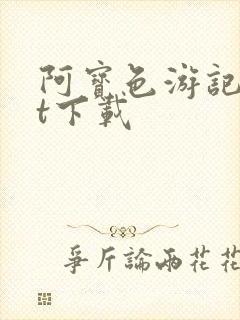 阿寶色游記
t下載
爭斤論兩花花